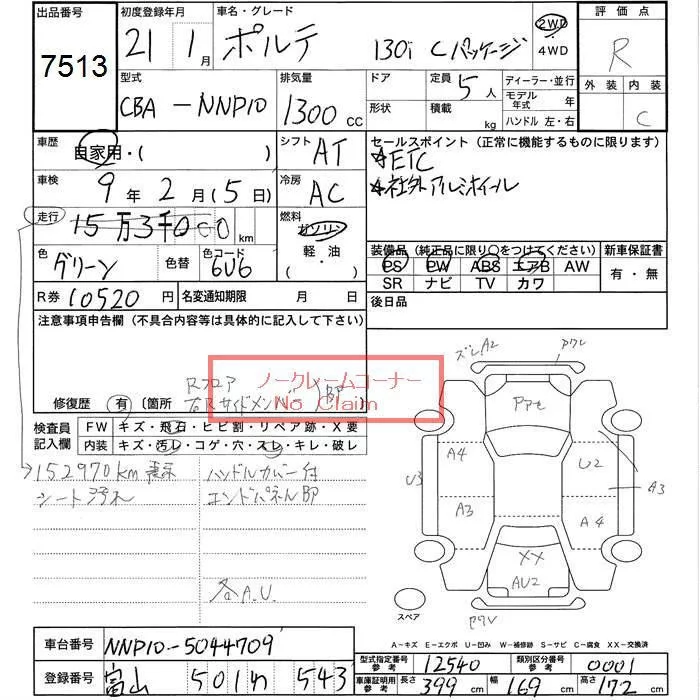 出品番号
7513
初度登録年月
21 1月
車名・グレード
ポルテ 130i Cパッケージ
2WD
・
4WD
評価点
R
外装 内装
C
型式
CBA-NNP10
排気量
1300 CC
ドア
形状
定員 5人
積載 kg
ディーラー・並行
モデル年式 年
ハンドル 左・右
車歴
自家用・( )
シフト
AT
セールスポイント (正常に機能するものに限ります)
ETC
社外アルミホイール
車検
9年2月(5日)
冷房
AC
走行
15万3千000km
燃料
ガソリン
軽・油
・( )
色
グリーン
色替
色コード
6U6
装備品 (純正品に限り○をつけてください)
PS PW ABS エアB AW
SR ナビ TV カワ
新車保証書
有・無
R券 10520円
名変通知期限 月 日
後日品
注意事項申告欄 (不具合内容等は具体的に記入して下さい)
ノークレームコーナー
No Claim
修復歴 有 〔箇所
Rフロア
右Rサイドメンバー
検査員
記入欄
FW キズ・飛石・ヒビ割・リペア跡・X要
内装 キズ・汚レ・コゲ・穴・スレ・キレ・破レ
152970km表示
シート汚れ
ハンドルカバー付
エンドパネル即
各A.U.
ズレA2
アワレ
A4
U2
U3
A3
A3
A4
XX
AU2
スペア
A-キズ E-エクボ U-凹み W-補修跡 S-サビ C-腐食 XX-交換済
車台番号
NNP10-5044709
登録番号
富山 501 543
型式指定番号
参考
12540
類別区分番号
参考
0001
車庫証明用
参考
長さ 399 cm
幅 169 cm
高さ 172 cm